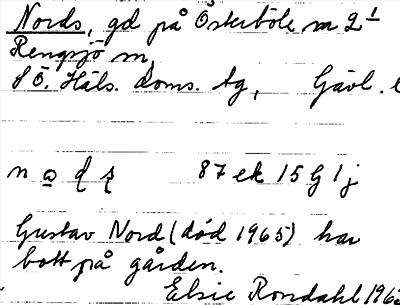 Nords, gd på Österböle nr 2¹
Rengsjö sn,
SÖ. Häls. doms. tg, Gävl. l
87 ek 15 G 1 j
Gustav Nord (död 1965) har
bott på gården.
Elsie Rondahl 196